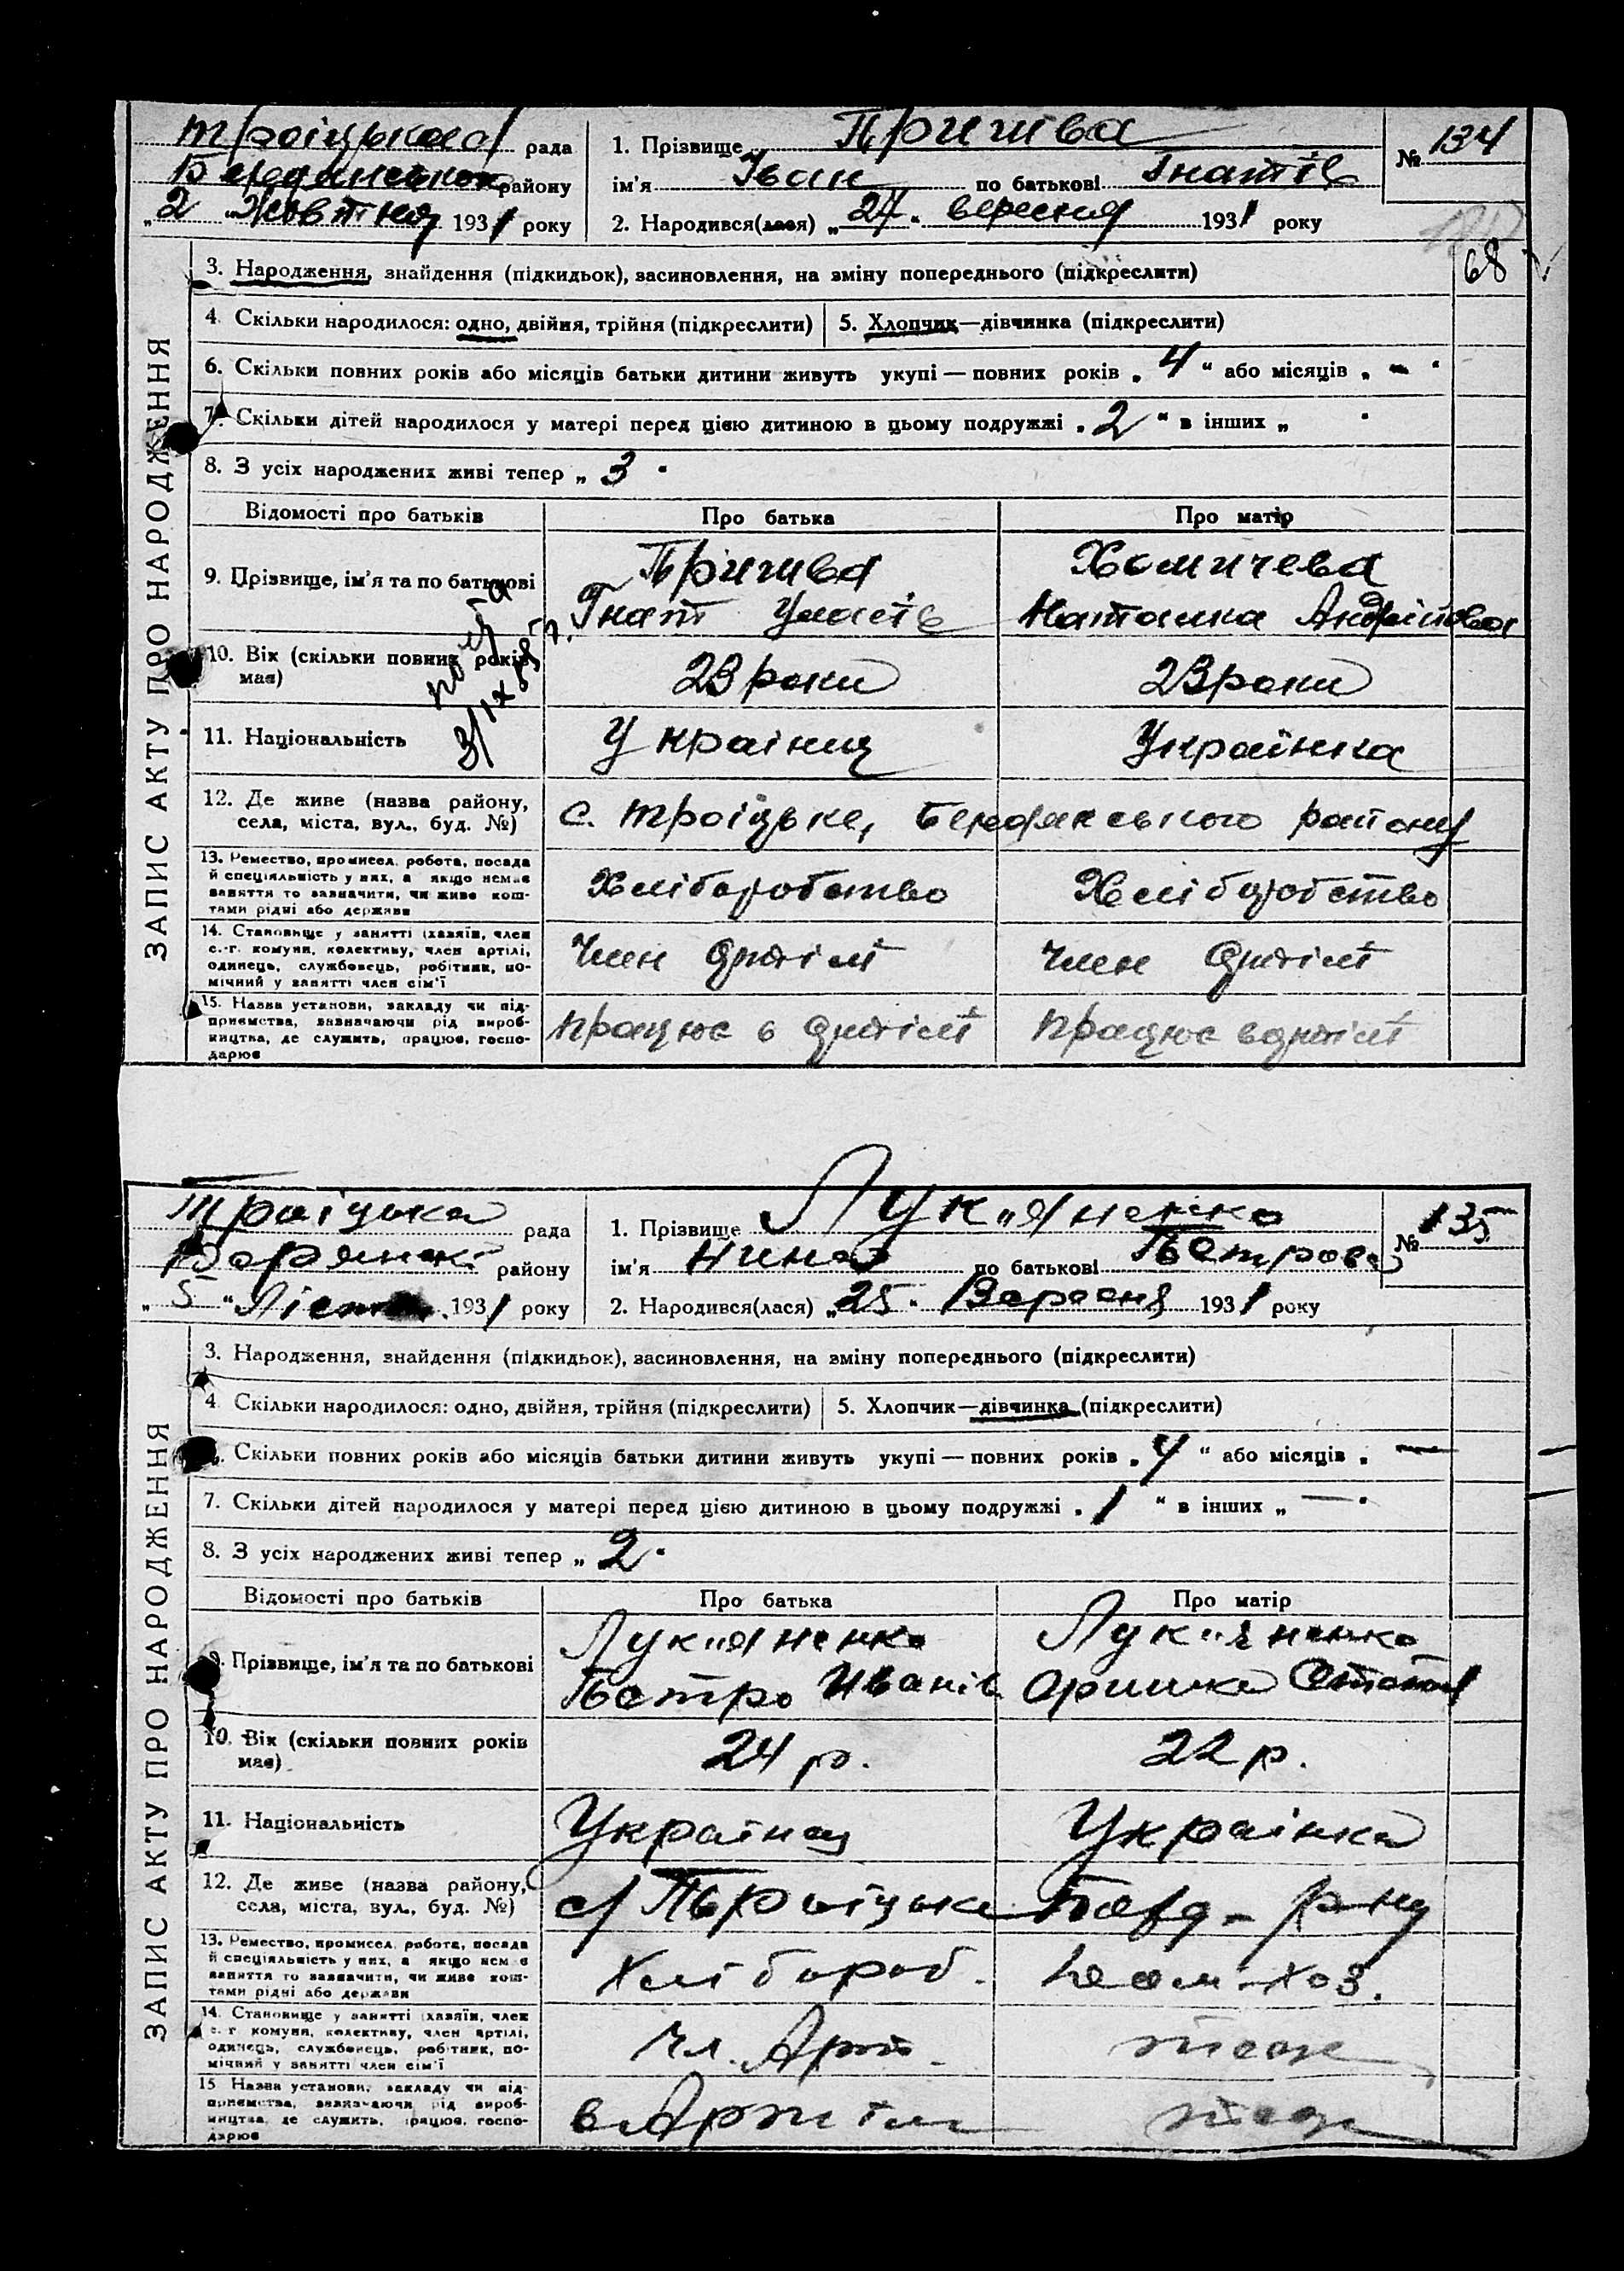 Троіцька рада
Бердянського району
„2 " Жовтня 1931 року
1. Прізвище Пришва
ім'я Іван по батькові Гнатів
2. Народився(лася) „27" вересня 1931 року
№ 134
68
ЗАПИС АКТУ ПРО НАРОДЖЕННЯ
3. Народження, знайдення (підкидьок), засиновлення, на зміну попереднього (підкреслити)
4. Скільки народилося: одно, двійня, трійня (підкреслити) 5. Хлопчик—дівчинка (підкреслити)
6. Скільки повних років або місяців батьки дитини живуть укупі — повних років „ 4 " або місяців „ – "
7. Скільки дітей народилося у матері перед цією дитиною в цьому подружжі „ 2 " в інших „ "
8. З усіх народжених живі тепер „ 3 "
Відомості про батьків Про батька Про матір
9. Прізвище, ім'я та по батькові
Пришва
Гнат
Хомичева
Наталка Андріївна
3/IX
10. Вік (скільки повних років має)
23 роки 23 роки
11. Національність Украінец Украінка
12. Де живе (назва району,
села, міста, вул., буд. №)
с. Троіцьке, Бердянського району
13. Ремество, промисел, робота, посада
й спеціяльність у них, а якщо немає
заняття то зазначити, чи живе кош-
тами рідні або держави
Хліборобство Хліборобство
14. Становище у занятті (хазяїн, член
с.-г. комуни, колективу, член артілі,
одинець, службовець, робітник, по-
мічний у занятті член сім'ї
Член артілі Член артілі
15. Назва установи, закладу чи під-
приємства, зазначаючи рід вироб-
ництва, де служить, працює, госпо-
дарює
працює в артілі працює в артілі
Троіцька рада
району
„ 5 " 1931 року
1. Прізвище Лук"яненко
ім'я Нина по батькові Петрова
2. Народився(лася) „25" Вересня 1931 року
№ 135
ЗАПИС АКТУ ПРО НАРОДЖЕННЯ
3. Народження, знайдення (підкидьок), засиновлення, на зміну попереднього (підкреслити)
4. Скільки народилося: одно, двійня, трійня (підкреслити) 5. Хлопчик—дівчинка (підкреслити)
Скільки повних років або місяців батьки дитини живуть укупі — повних років „ 4 " або місяців „ —
7. Скільки дітей народилося у матері перед цією дитиною в цьому подружжі „ 1 " в інших „ — "
8. З усіх народжених живі тепер „ 2 "
Відомості про батьків Про батька Про матір
9. Прізвище, ім'я та по батькові
Лук"яненко
Петро Иванів
Лук"яненко
Оришка
10. Вік (скільки повних років має)
24 р. 22 р.
11. Національність Українец Українка
12. Де живе (назва району,
села, міста, вул., буд. №)
с/ Троіцьке Берд – р-ну
13. Ремество, промисел, робота, посада
й спеціяльність у них, а якщо немає
заняття то зазначити, чи живе кош-
тами рідні або держави
Хлібороб.
14. Становище у занятті (хазяїн, член
с.-г. комуни, колективу, член артілі,
одинець, службовець, робітник, по-
мічний у занятті член сім'ї
Чл. Арт. теж
15 Назва установи, закладу чи під-
приємства, зазначаючи рід вироб-
ництва, де служить, працює, госпо-
дарює
в Артіли теж